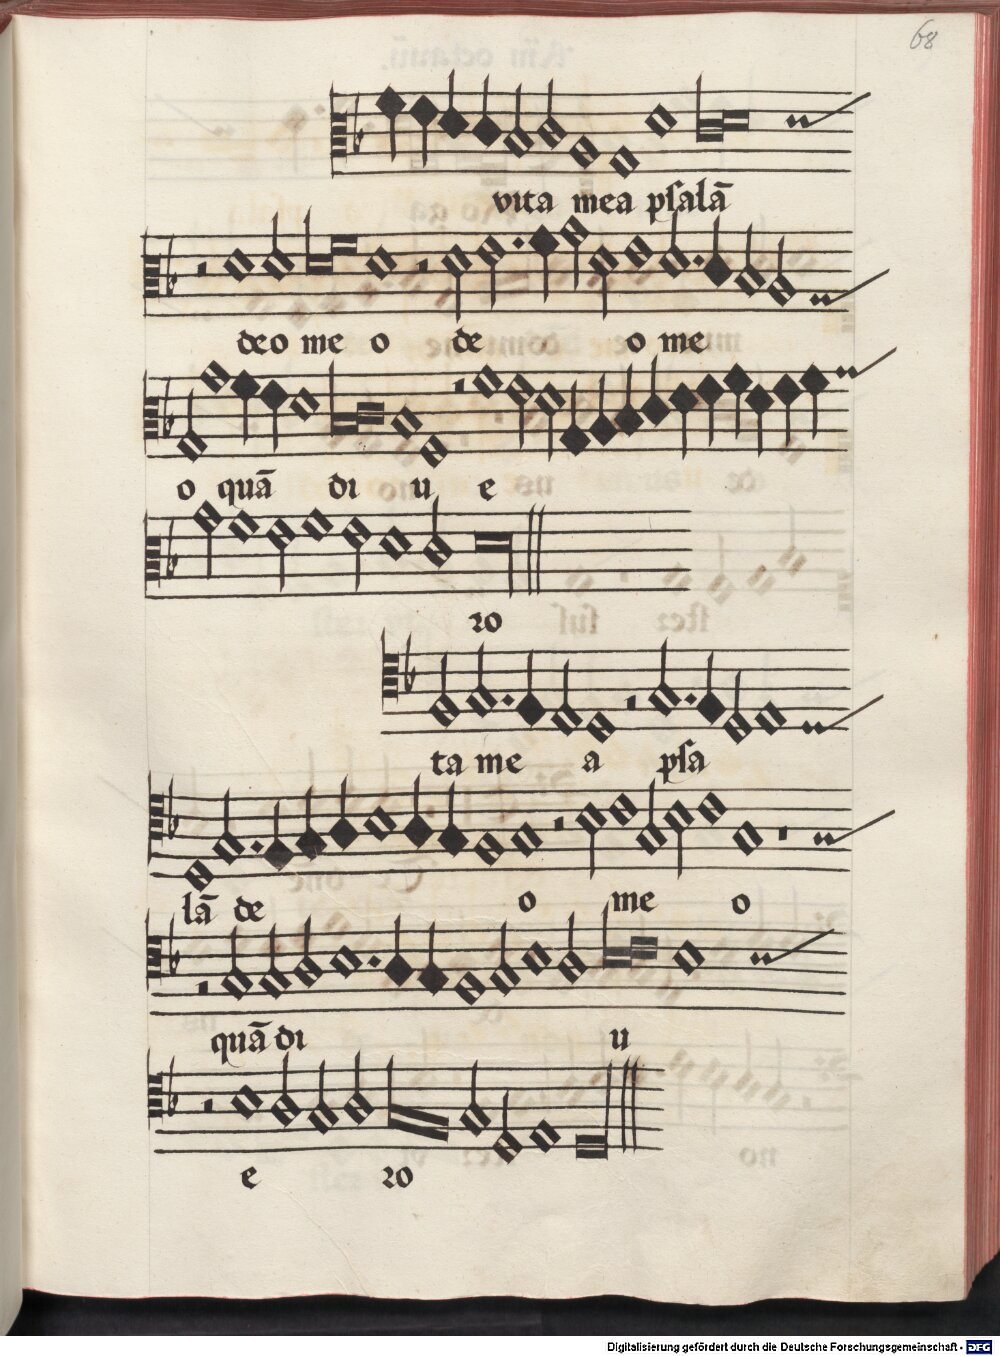 68
vita mea psalā
deo me o de o me
o quā di u e
ro
ta me a psa
lā de o me o
quā di u
e ro
Digitalisierung gefördert durch die Deutsche Forschungsgemeinschaft - DFG